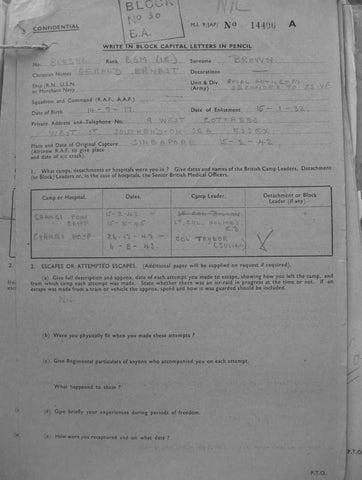 BLOCK
No 30
E.A.
NIL
CONFIDENTIAL
M.I. 9/JAP/ No 14496 A
WRITE IN BLOCK CAPITAL LETTERS IN PENCIL
No. Rank BSM Surname BROWN
Christian Names GERALD ERNEST Decorations
Ship (R.N., U.S.N. or Merchant Navy
Unit & Div. (Army) ROYAL ARTILLERY
Squadron and Command (R.A.F., A.A.F.)
Date of Birth 14-9-17. Date of Enlistment 15-1-32.
Private Address and Telephone No. 9 WEST COTTAGES
WEST ST SOUTHEND-ON-SEA ESSEX
Place and Date of Original Capture SINGAPORE 15-2-42.
(Aircrew R.A.F. to give place
and date of a/c crash).
1. What camps, detachments or hospitals were you in? Give dates and names of the British Camp Leaders, Detachment
(or Block) Leaders or, in the case of hospitals, the Senior British Medical Officers.
Camp or Hospital. Dates. Camp Leader. Detachment or Block Leader (if any).
CHANGI POW CAMP 15-2-42 - 15-8-45 LT. COL. HOLMES
CHANGI HOSP COL TAYLOR
2. 2. ESCAPES OR ATTEMPTED ESCAPES. (Additional paper will be supplied on request if required).
(a) Give full description and approx. date of each attempt you made to escape, showing how you left the camp, and
from which camp each attempt was made. State whether there was an air-raid in progress at the time or not. If an
escape was made from a train or vehicle the approx. speed and how it was guarded should be included.
NIL
(b) Were you physically fit when you made these attempts?
(c) Give Regimental particulars of anyone who accompanied you on each attempt.
What happened to them?
(d) Give briefly your experiences during periods of freedom.
(e) How were you recaptured and on what date?
P.T.O.
P.T.O.